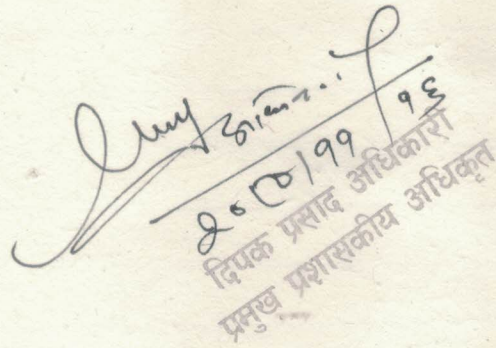 २०८०/११/१६
दिपक प्रसाद अधिकारी
प्रमुख प्रशासकीय अधिकृत